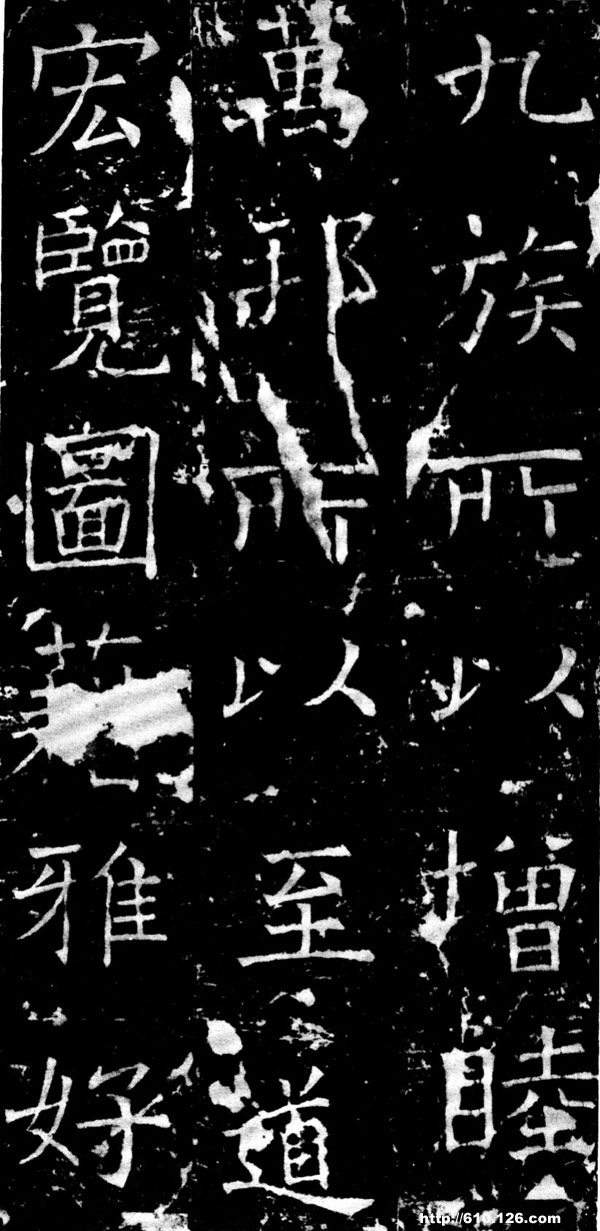 九族所以增睦
萬邦所以至道
宏覽圖雅好
http://610.126.com